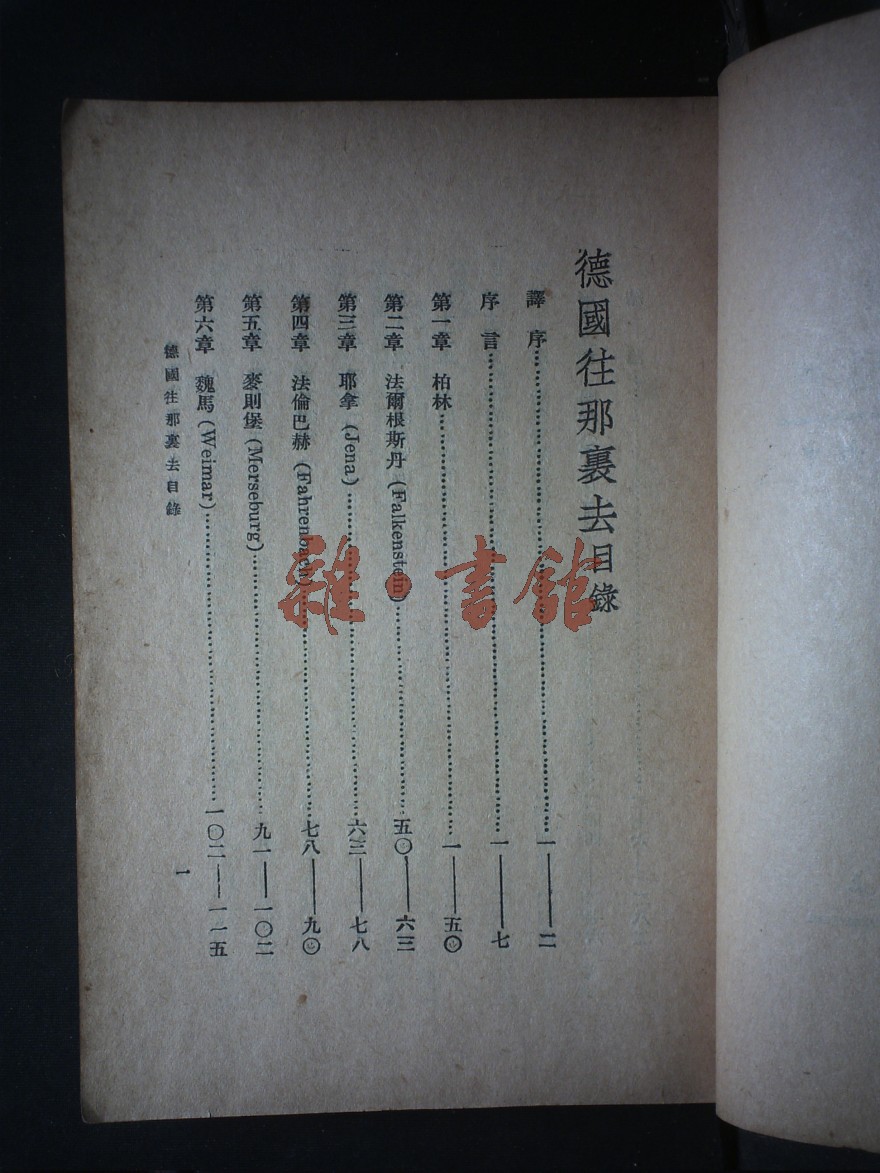 德國往那裏去目錄
譯序……一——二
序言……一——七
第一章 柏林……一——五〇
第二章 法爾根斯丹 (Falkenstein)……五〇——六三
第三章 耶拿 (Jena)……六三——七八
第四章 法倫巴赫 (Fahrenbach)……七八——九〇
第五章 麥則堡 (Merseburg)……九一——一〇二
第六章 魏馬 (Weimar)……一〇二——一一五
德國往那裏去目錄
一
雜·書館